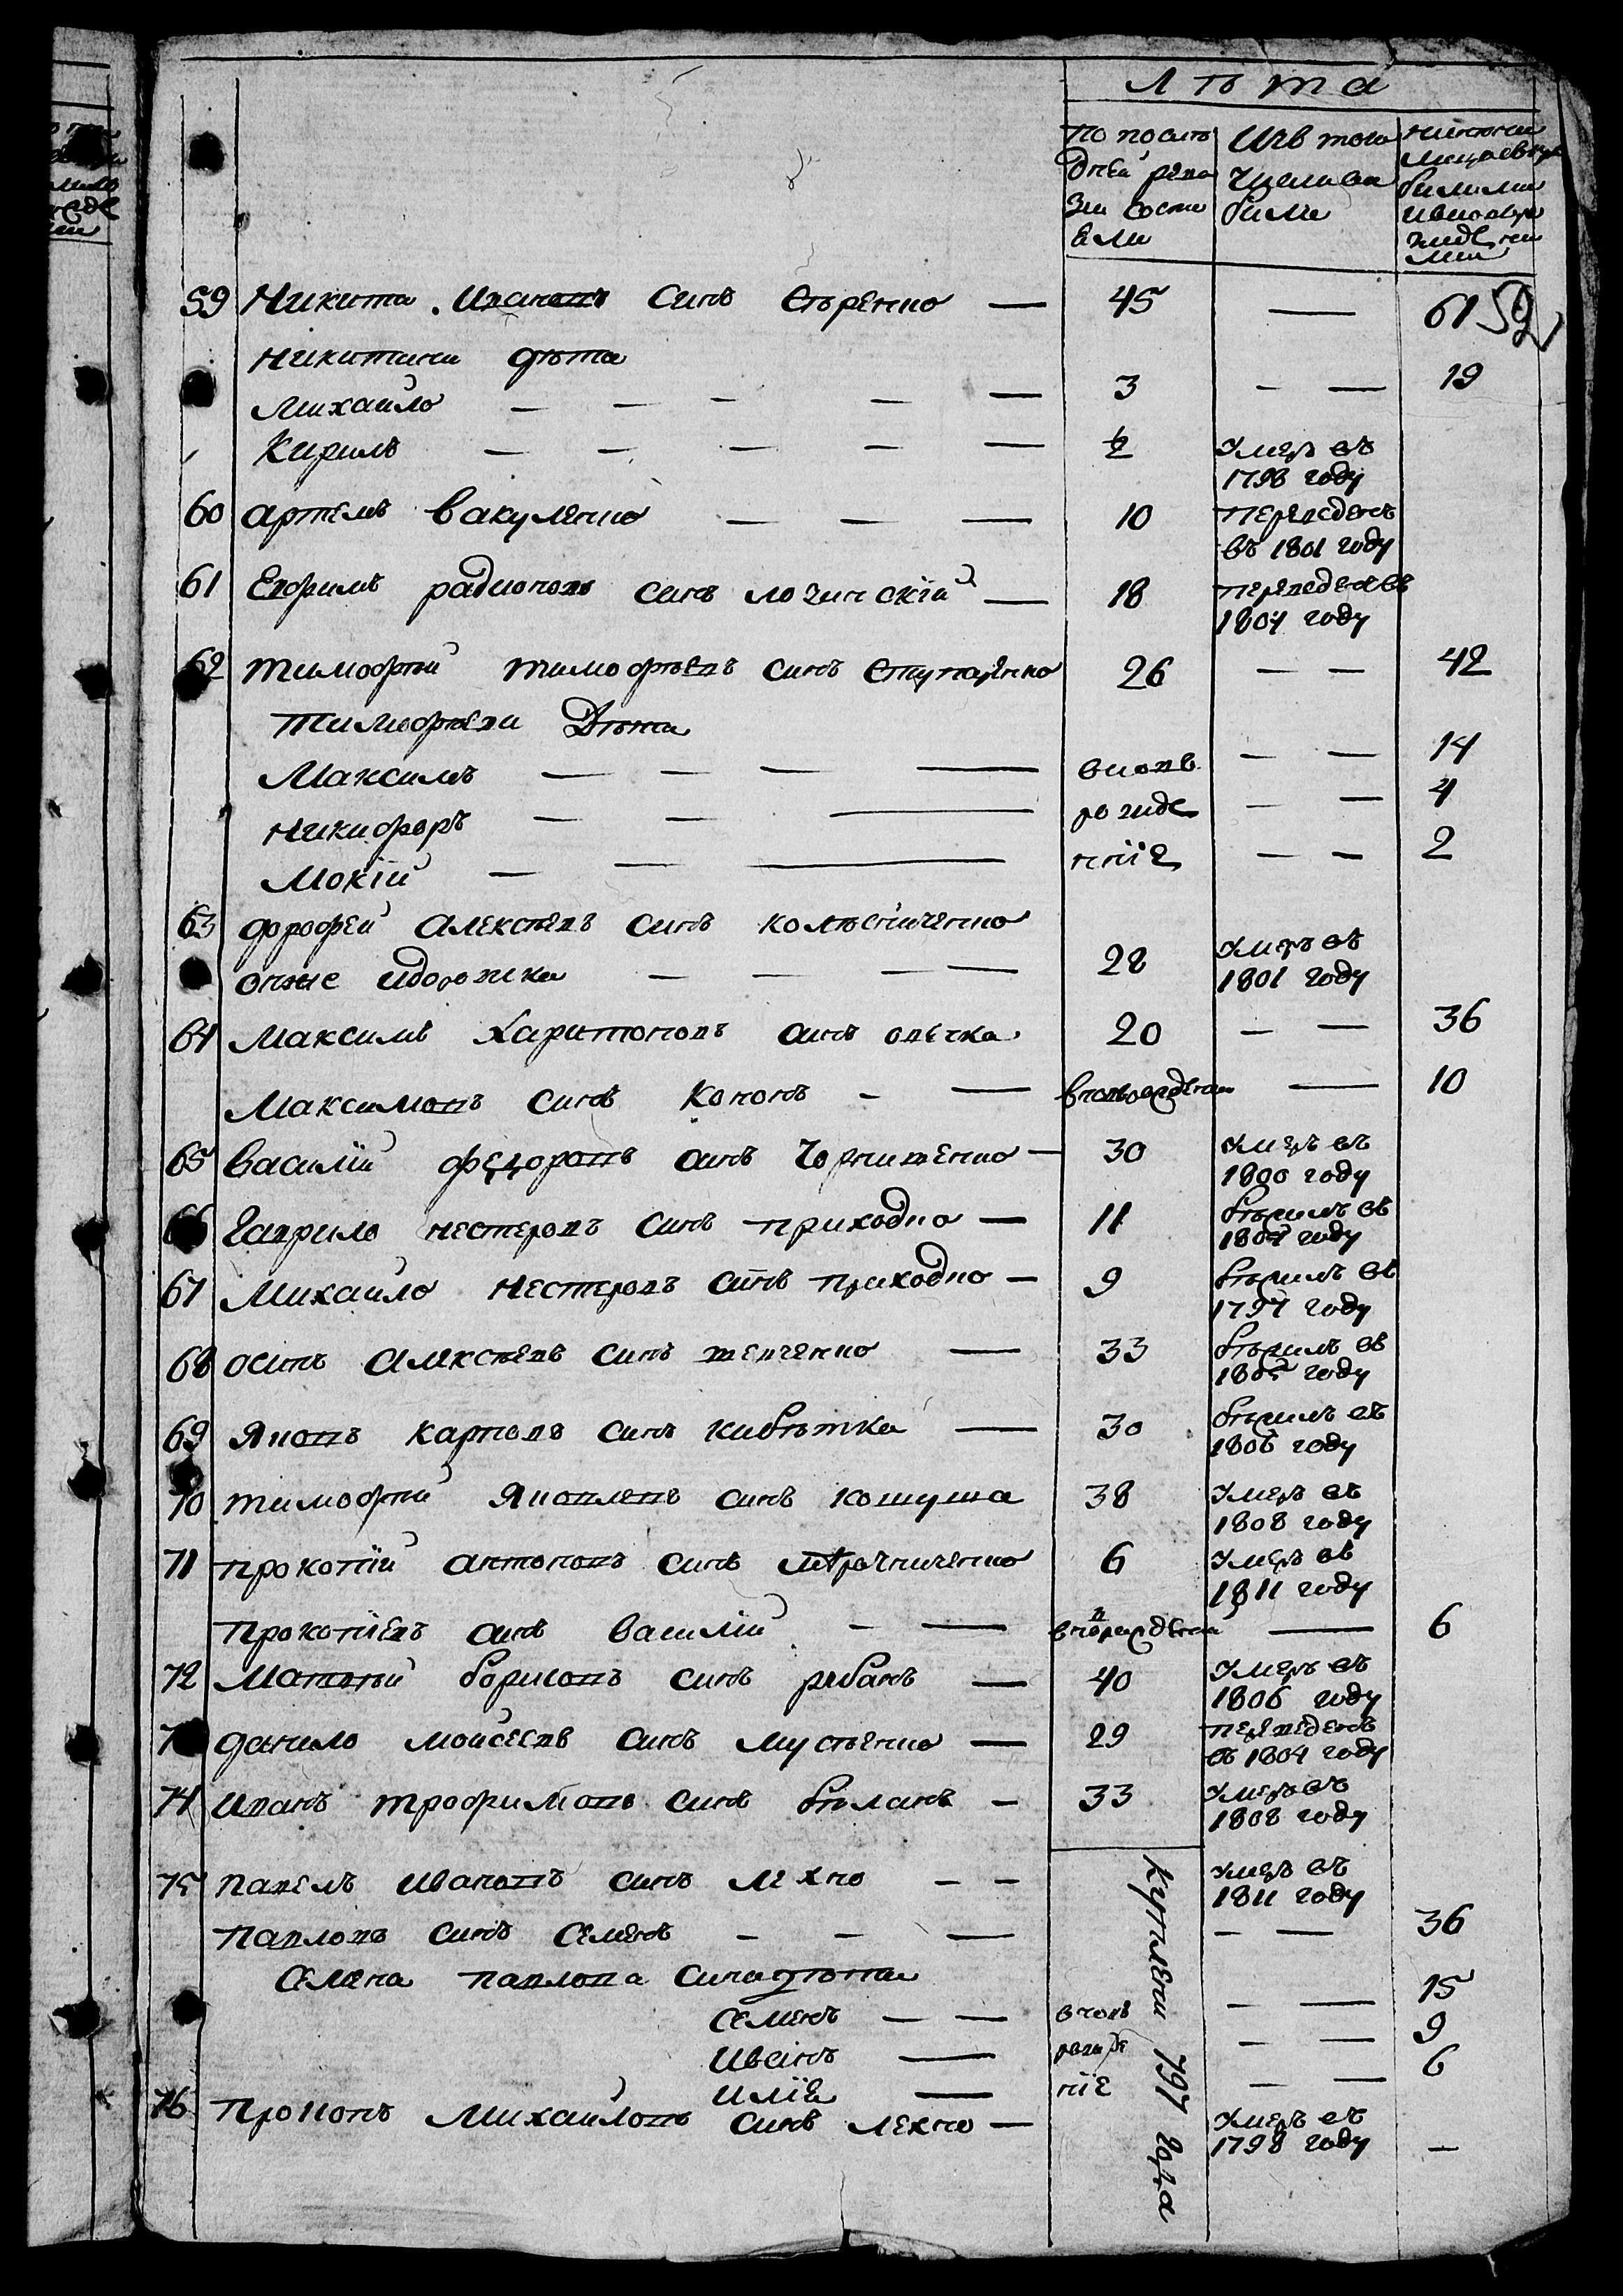 Лѣта
По послѣ
дней реви
зіи состо
яли
Изъ того
числа въ
были
59 Никита Ивановъ синъ — 45 — 61 59
Никитини дѣти
Михайло — — — — — 3 — — 19
Кирилъ — — — — — 2 Умеръ въ
1798 году
60 Артемъ Вакуленко — — — 10 Переведенъ
въ 1801 году
61 Евфимъ Радионовъ синъ Лозинскій — 18 Переведенъ въ
1804 году
62 Тимофѣй Тимофѣевъ синъ 26 — — 42
Тимофѣеви Дѣти
Максимъ — — — — вновь — — 14
Никифоръ — — — рожде — — 4
Мокій — — — нніе — — 2
63 Дорофей Алексѣевъ синъ Колѣсниченко
онже Идорожка — — — — 28 Умеръ въ
1801 году
64 Максимъ Харитоновъ синъ Овечка 20 — — 36
Максимовъ синъ Кононъ — — — 10
65 Василій Федоровъ синъ — 30 Умеръ въ
1800 году
66 Гаврило Нестеровъ синъ Приходко — 11 бѣжилъ въ
1804 году
67 Михайло Нестеровъ синъ Приходко — 9 бѣжилъ въ
1797 году
68 Осипъ Алексѣевъ синъ Шевченко — 33 бѣжилъ въ
1805 году
69 Яковъ Карповъ синъ Кибѣтка — 30 бѣжилъ въ
1806 году
70 Тимофѣй Яковлевъ синъ Кошуша 38 Умеръ въ
1808 году
71 Прокопій Антоновъ синъ 6 Умеръ въ
1811 году
Прокопіевъ синъ Василій — — — 6
72 Матвѣй Борисовъ синъ Рябакъ — 40 Умеръ въ
1806 году
7 Данило Мойсеевъ синъ Мусѣенко — 29 Переведенъ
въ 1804 году
74 Иванъ Трофимовъ синъ Бѣланъ — 33 Умеръ въ
1808 году
75 Павелъ Ивановъ синъ Лехно — — Умеръ въ
1811 году
Павловъ синъ Семенъ — — — — — 36
Семена Павлова сина дѣти
Семенъ — — вновь — — 15
Ивсінъ — рожде — — 9
Илія — ніе — — 6
Куплени 797 года
76 Прокопъ Михайловъ синъ Лехно — Умеръ въ
1798 году —